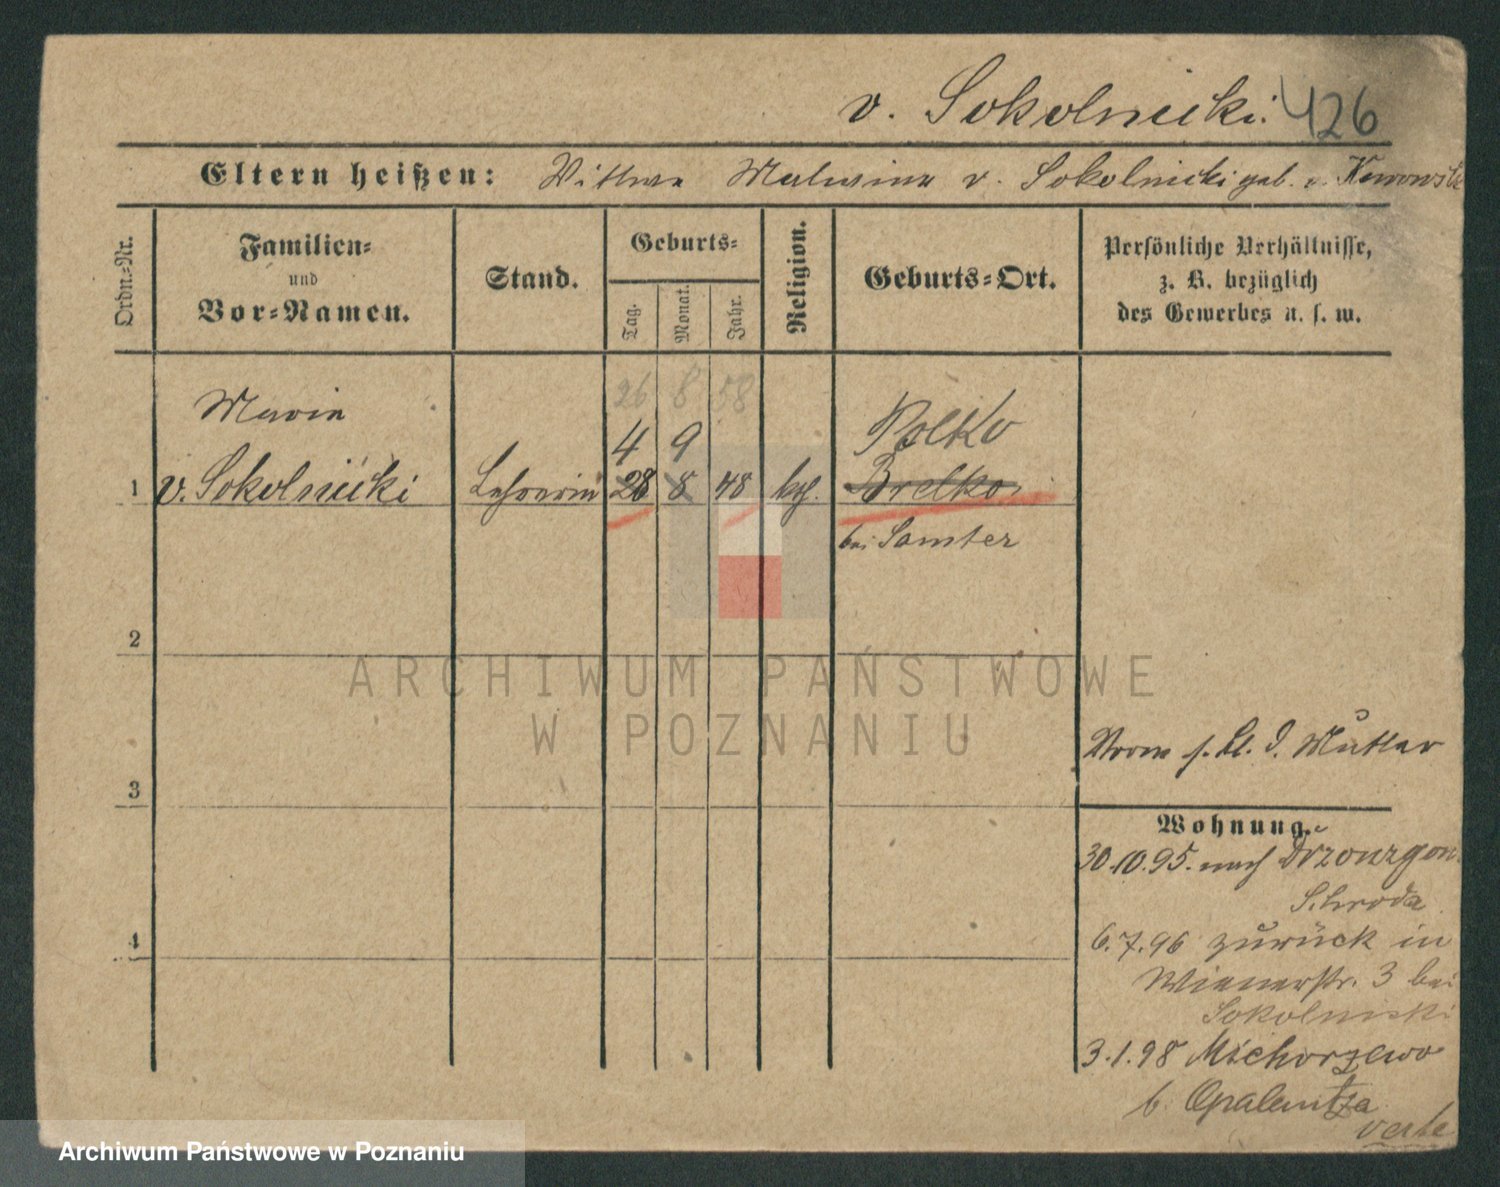 v. Sokolnicki. 426
Eltern heißen: Wittwe Malwina v. Sokolnicki geb. v.
Ordn.-Nr.
Familien-
und
Vor-Namen.
Stand.
Geburts-
Tag.
Monat.
Jahr.
Religion.
Geburts-Ort.
Persönliche Verhältnisse,
z. B. bezüglich
des Gewerbes u. s. w.
26 8 58
Maria
4 9 Polko
1 v. Sokolnicki Lehrerin 28 8 48 kath. Brelko
bei Samter
2
ARCHIWUM PAŃSTWOWE
W POZNANIU
3
4
Mutter
Wohnung.
30.10.95. nach
Schroda
6.7.96 zurück in
Wienerstr. 3 bei
Sokolnicki
3.1.98 Michorzewo
b. Opalenitza
verte
Archiwum Państwowe w Poznaniu